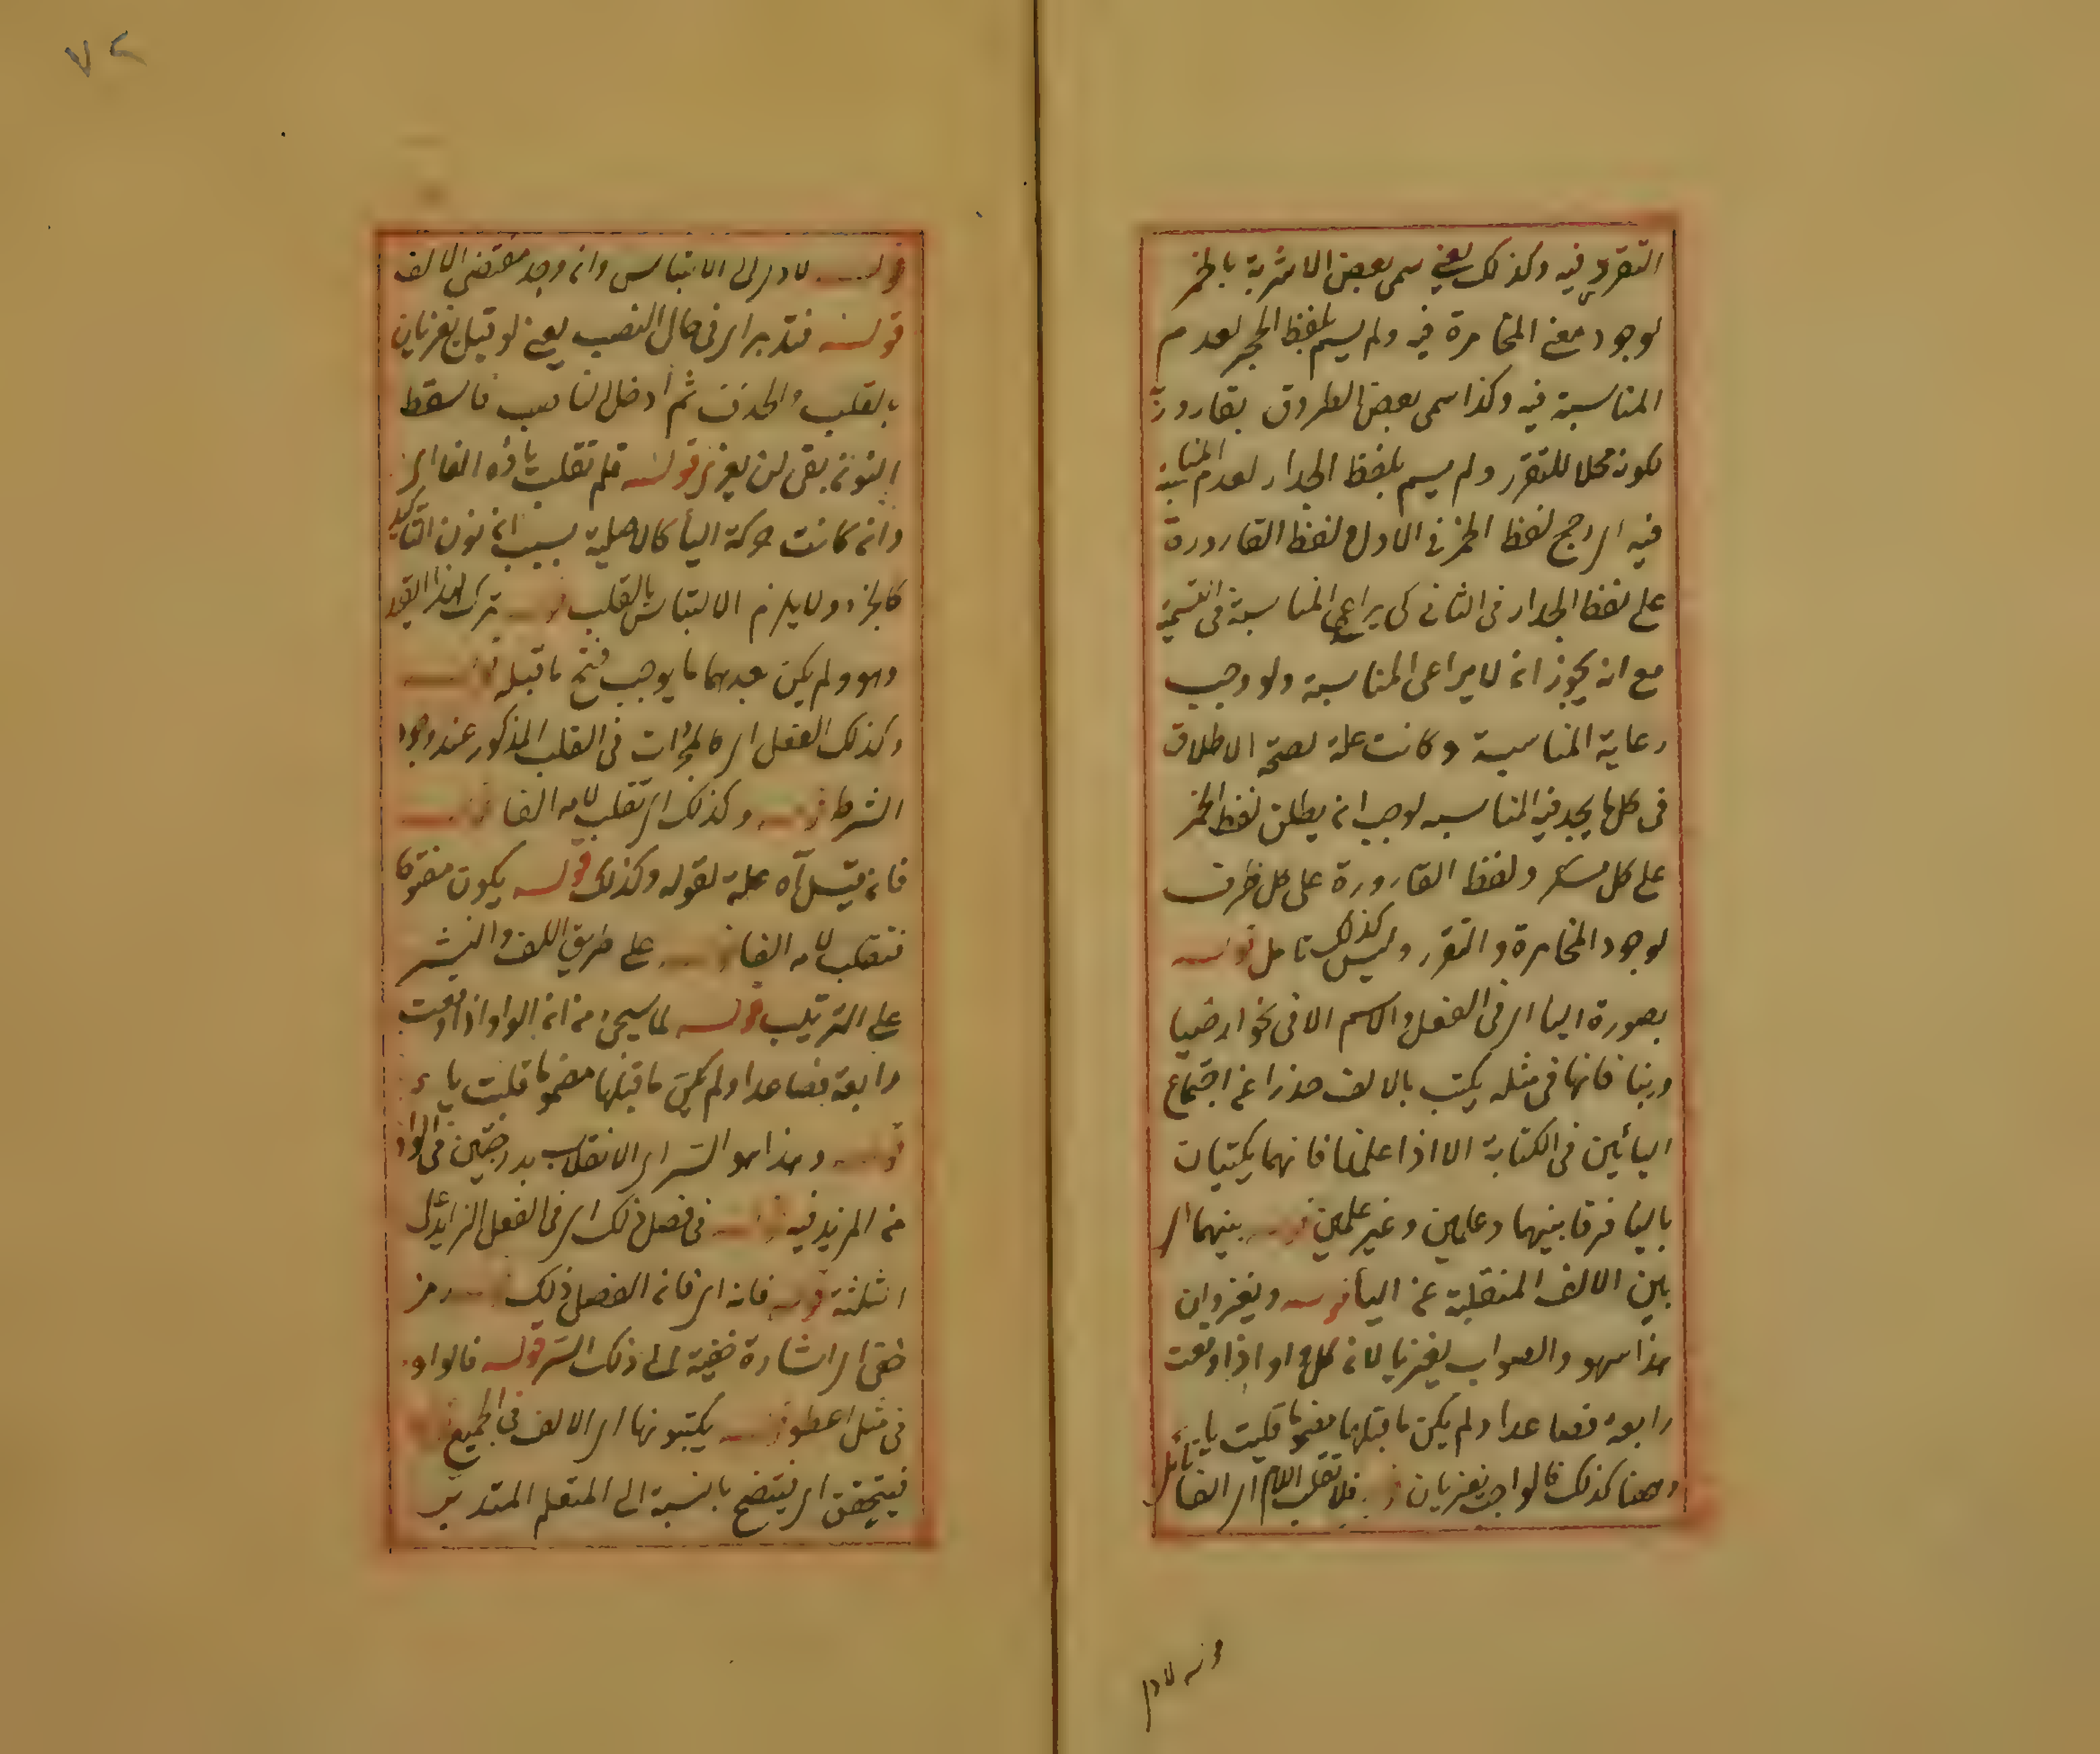 التقرر فيه وكذلك يعني سمى بعض الاشربة بالخمر
لوجود معنى المخامرة فيه ولم يسم بلفظ الحجر لعدم
المناسبة فيه وكذا سمى بعض الظروف بقارورة
لكونه محلا للتقرر ولم يسم بلفظ الجدار لعدم المناسبة
فيه اى رجح لفظ الخمر فى الاول ولفظ القارورة
على لفظ الجدار فى الثانى كى يراعى المناسبة فى التسمية
مع انه يجوز ان لا يراعى المناسبة ولو وجب
رعاية المناسبة وكانت علة لصحة الاطلاق
فى كل ما يجد فيه المناسبه لوجب ان يطلق لفظ الخمر
على كل مسكر ولفظ القارورة على كل ظرف
لوجود المخامرة والتقرر وليس كذلك تامل قوله
بصورة اليا اى فى الفعل والاسم الا فى نحو
فانها فى مثله يكتب بالالف حذرا عن اجتماع
اليائين فى الكتابة الا اذا علمنا فانهما يكتبان
باليا فرقا بينهما وعلمين وغير علمين قوله بينهما اى
بين الالف المنقلبة عن اليا قوله ويغزوان
هذا سهو والصواب يغزيا لان كل واو اذا وقعت
رابعة فصاعدا ولم يكن ما قبلها مضموما قلبت يا
وههنا كذلك فالواجب يغزيان قوله فلا تقلب اللام اى الفا تأمل
قوله لادى
٧٢
قوله لادى الى الالتباس وان وجد مقتضى الالف
قوله فتدبر اى فى حال النصب يعنى لو قيل يغزيان
بالقلب والحذف ثم ادخل الناصب فاسقط
النون بقى لن يغزى قوله فلم تقلب ياؤه الفا اى
وان كانت حركة اليأ كالاصلية بسبب ان نون التأكيد
كالجزء ولا يلزم الالتباس بالقلب قوله ترك هذا القيد
وهو ولم يكن بعدهما ما يوجب فتح ما قبله قوله
وكذلك الفعل اى كالمجرد ات فى القلب المذكور عند وجود
الشرط قوله وكذلك اى تقلب لامه الفا قوله
فان قيل آه علة لقوله وكذلك قوله يكون مفتوحا
فتقلب لامه الفا قوله على طريق اللف والنشر
على الترتيب قوله لما سيجئ من ان الواو اذا وقعت
رابعة فصاعدا ولم يكن ما قبلها مضموما قلبت ياء
قوله وهذا هو السر اى الانقلاب بدرجتين فى الواو
من المزيد فيه قوله فى فصل ذلك اى فى الفعل الزائد على
الثلثة قوله فانه اى فان الفصل ذلك قوله رمز
خفى اى اشارة خفية الى ذلك السر قوله فالواو
فى مثل اعطو قوله يكتبونها اى الالف فى الجميع قوله
فيتحقق اى فيتضح بالنسبة الى المتعلم المتدبر